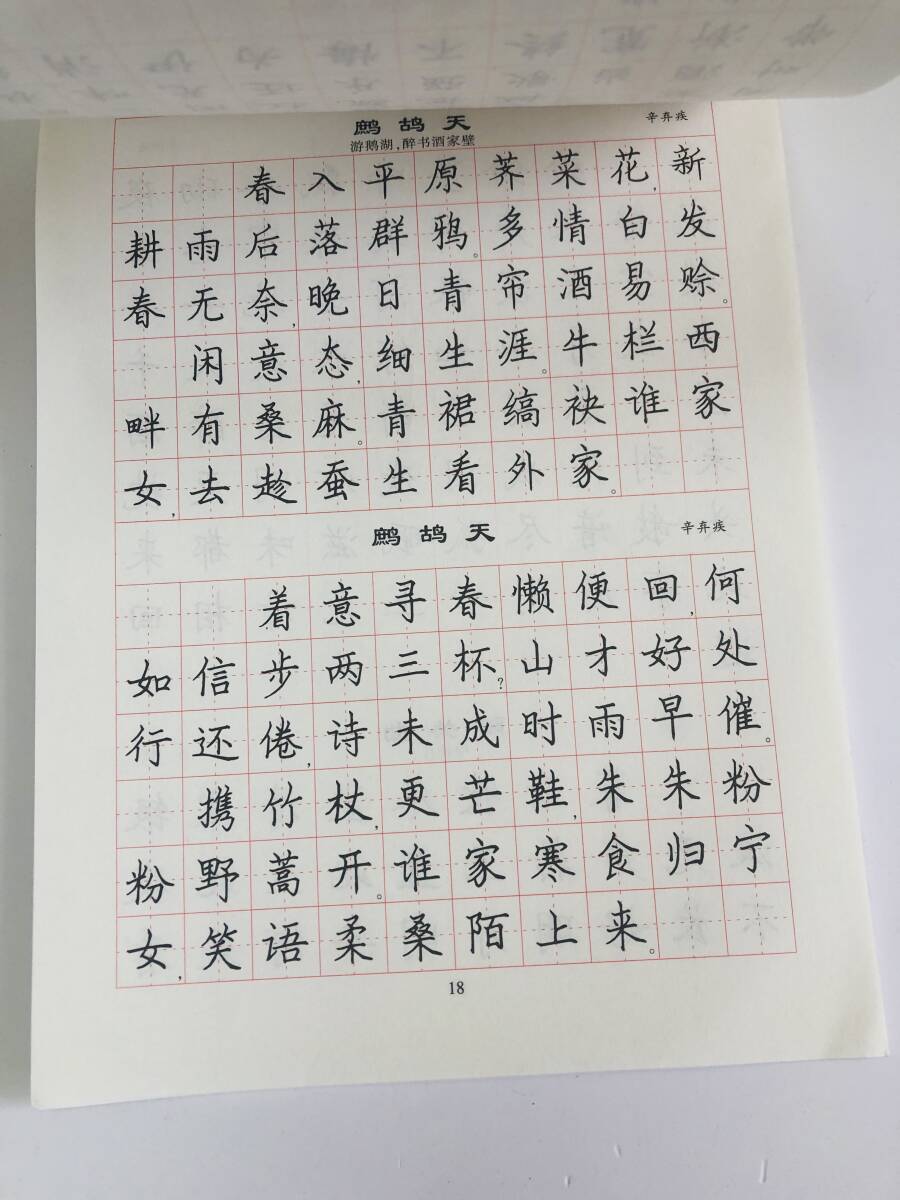 鹧鸪天 辛弃疾
游鹅湖,醉书酒家壁
春入平原荠菜花,新
耕雨后落群鸦。多情白发
春无奈,晚日青帘酒易赊。
闲意态,细生涯。牛栏西
畔有桑麻。青裙缟袂谁家
女,去趁蚕生看外家。
鹧鸪天 辛弃疾
着意寻春懒便回,何
如信步两三杯?山才好处
行还倦,诗未成时雨早催。
携竹杖,更芒鞋,朱朱粉
粉野蒿开。谁家寒食归宁
女,笑语柔桑陌上来。
18